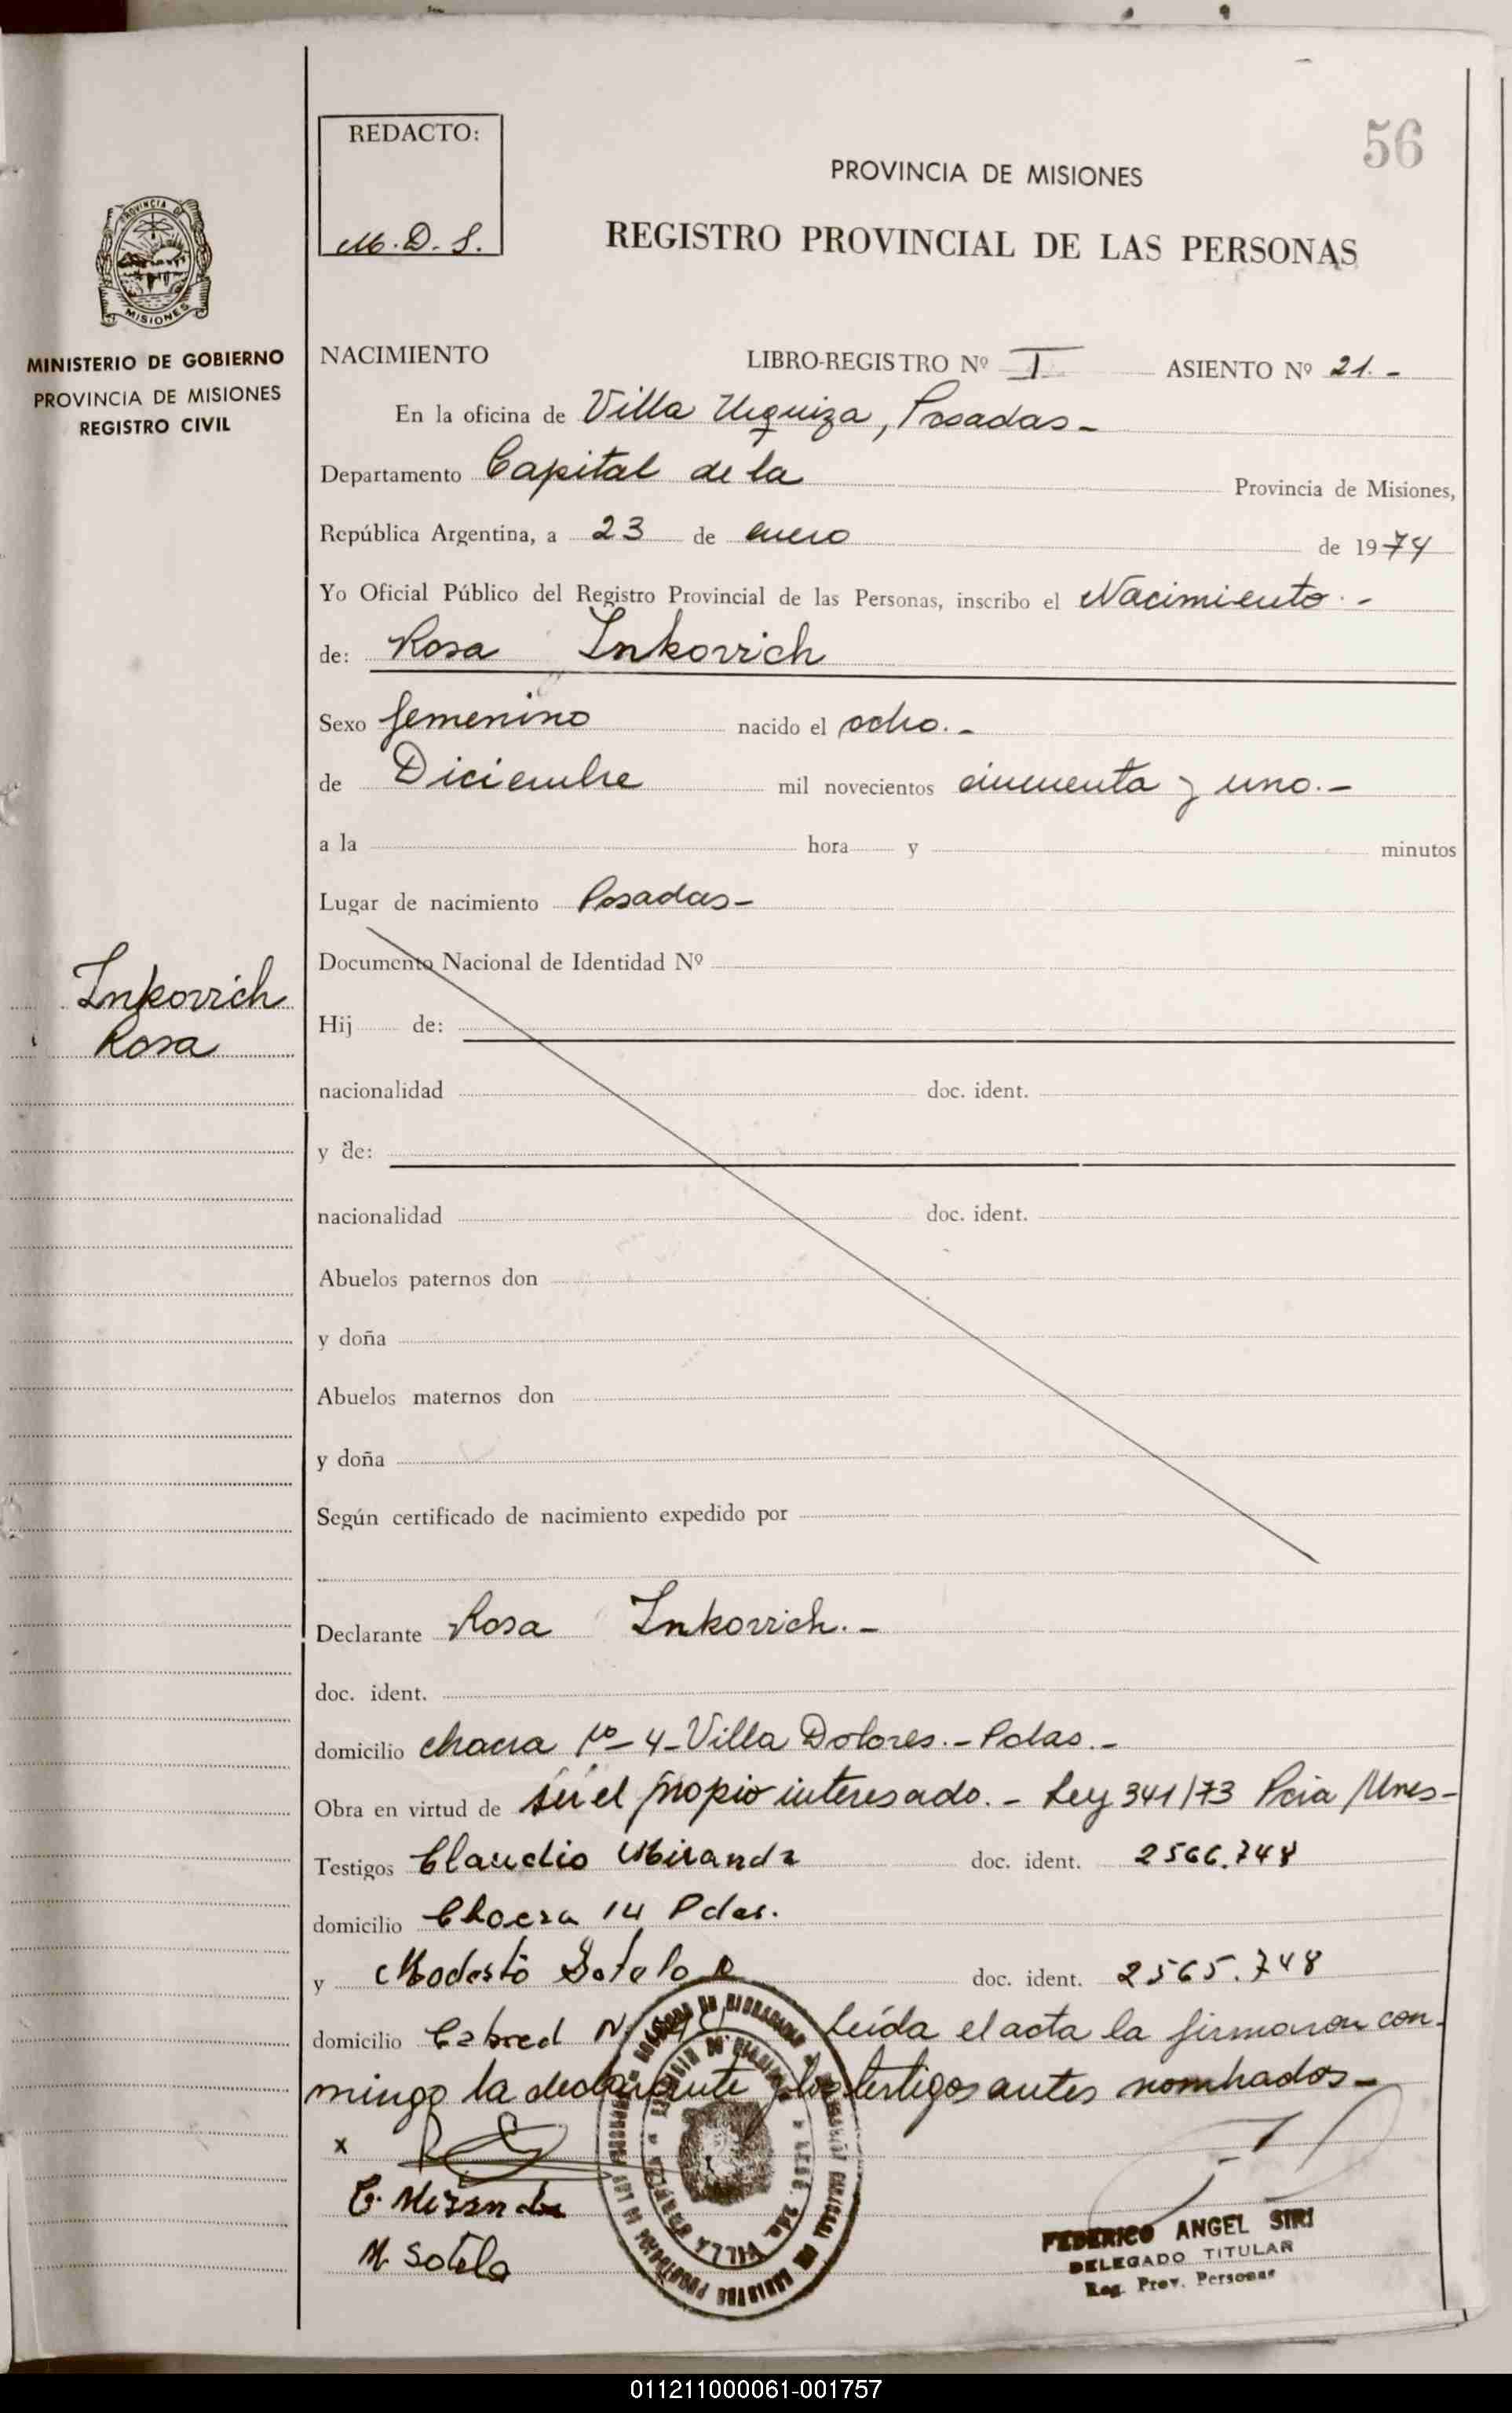 56
REDACTO:
M. D. S.
PROVINCIA DE MISIONES
REGISTRO PROVINCIAL DE LAS PERSONAS
PROVINCIA DE
MISIONES
MINISTERIO DE GOBIERNO
PROVINCIA DE MISIONES
REGISTRO CIVIL
NACIMIENTO LIBRO-REGISTRO Nº I ASIENTO Nº 21.-
En la oficina de Villa Urquiza, Posadas-
Departamento Capital de la Provincia de Misiones,
República Argentina, a 23 de enero de 1974
Yo Oficial Público del Registro Provincial de las Personas, inscribo el Nacimiento.-
de: Rosa Inkovich
Sexo femenino nacido el ocho.-
de Diciembre mil novecientos cincuenta y uno.-
a la hora y minutos
Lugar de nacimiento Posadas-
Inkovich
Rosa
Documento Nacional de Identidad Nº
Hij de:
nacionalidad doc. ident.
y de:
nacionalidad doc. ident.
Abuelos paternos don
y doña
Abuelos maternos don
y doña
Según certificado de nacimiento expedido por
Declarante Rosa Inkovich.-
doc. ident.
domicilio chacra Nº 4-Villa Dolores.-Pdas.-
Obra en virtud de ser el propio interesado.- Ley 341/73 Pcia Mnes-
Testigos Claudio Miranda doc. ident. 2566.748
domicilio Chacra 14 Pdas.
y Modesto Sotelo doc. ident. 2565.748
domicilio Cabred Leída el acta la firmaron con-
migo la declarante y los testigos antes nombrados-
x
C. Miranda
M Sotelo
VILLA
FEDERICO ANGEL SIRI
DELEGADO TITULAR
Reg. Prov. Personas
011211000061-001757